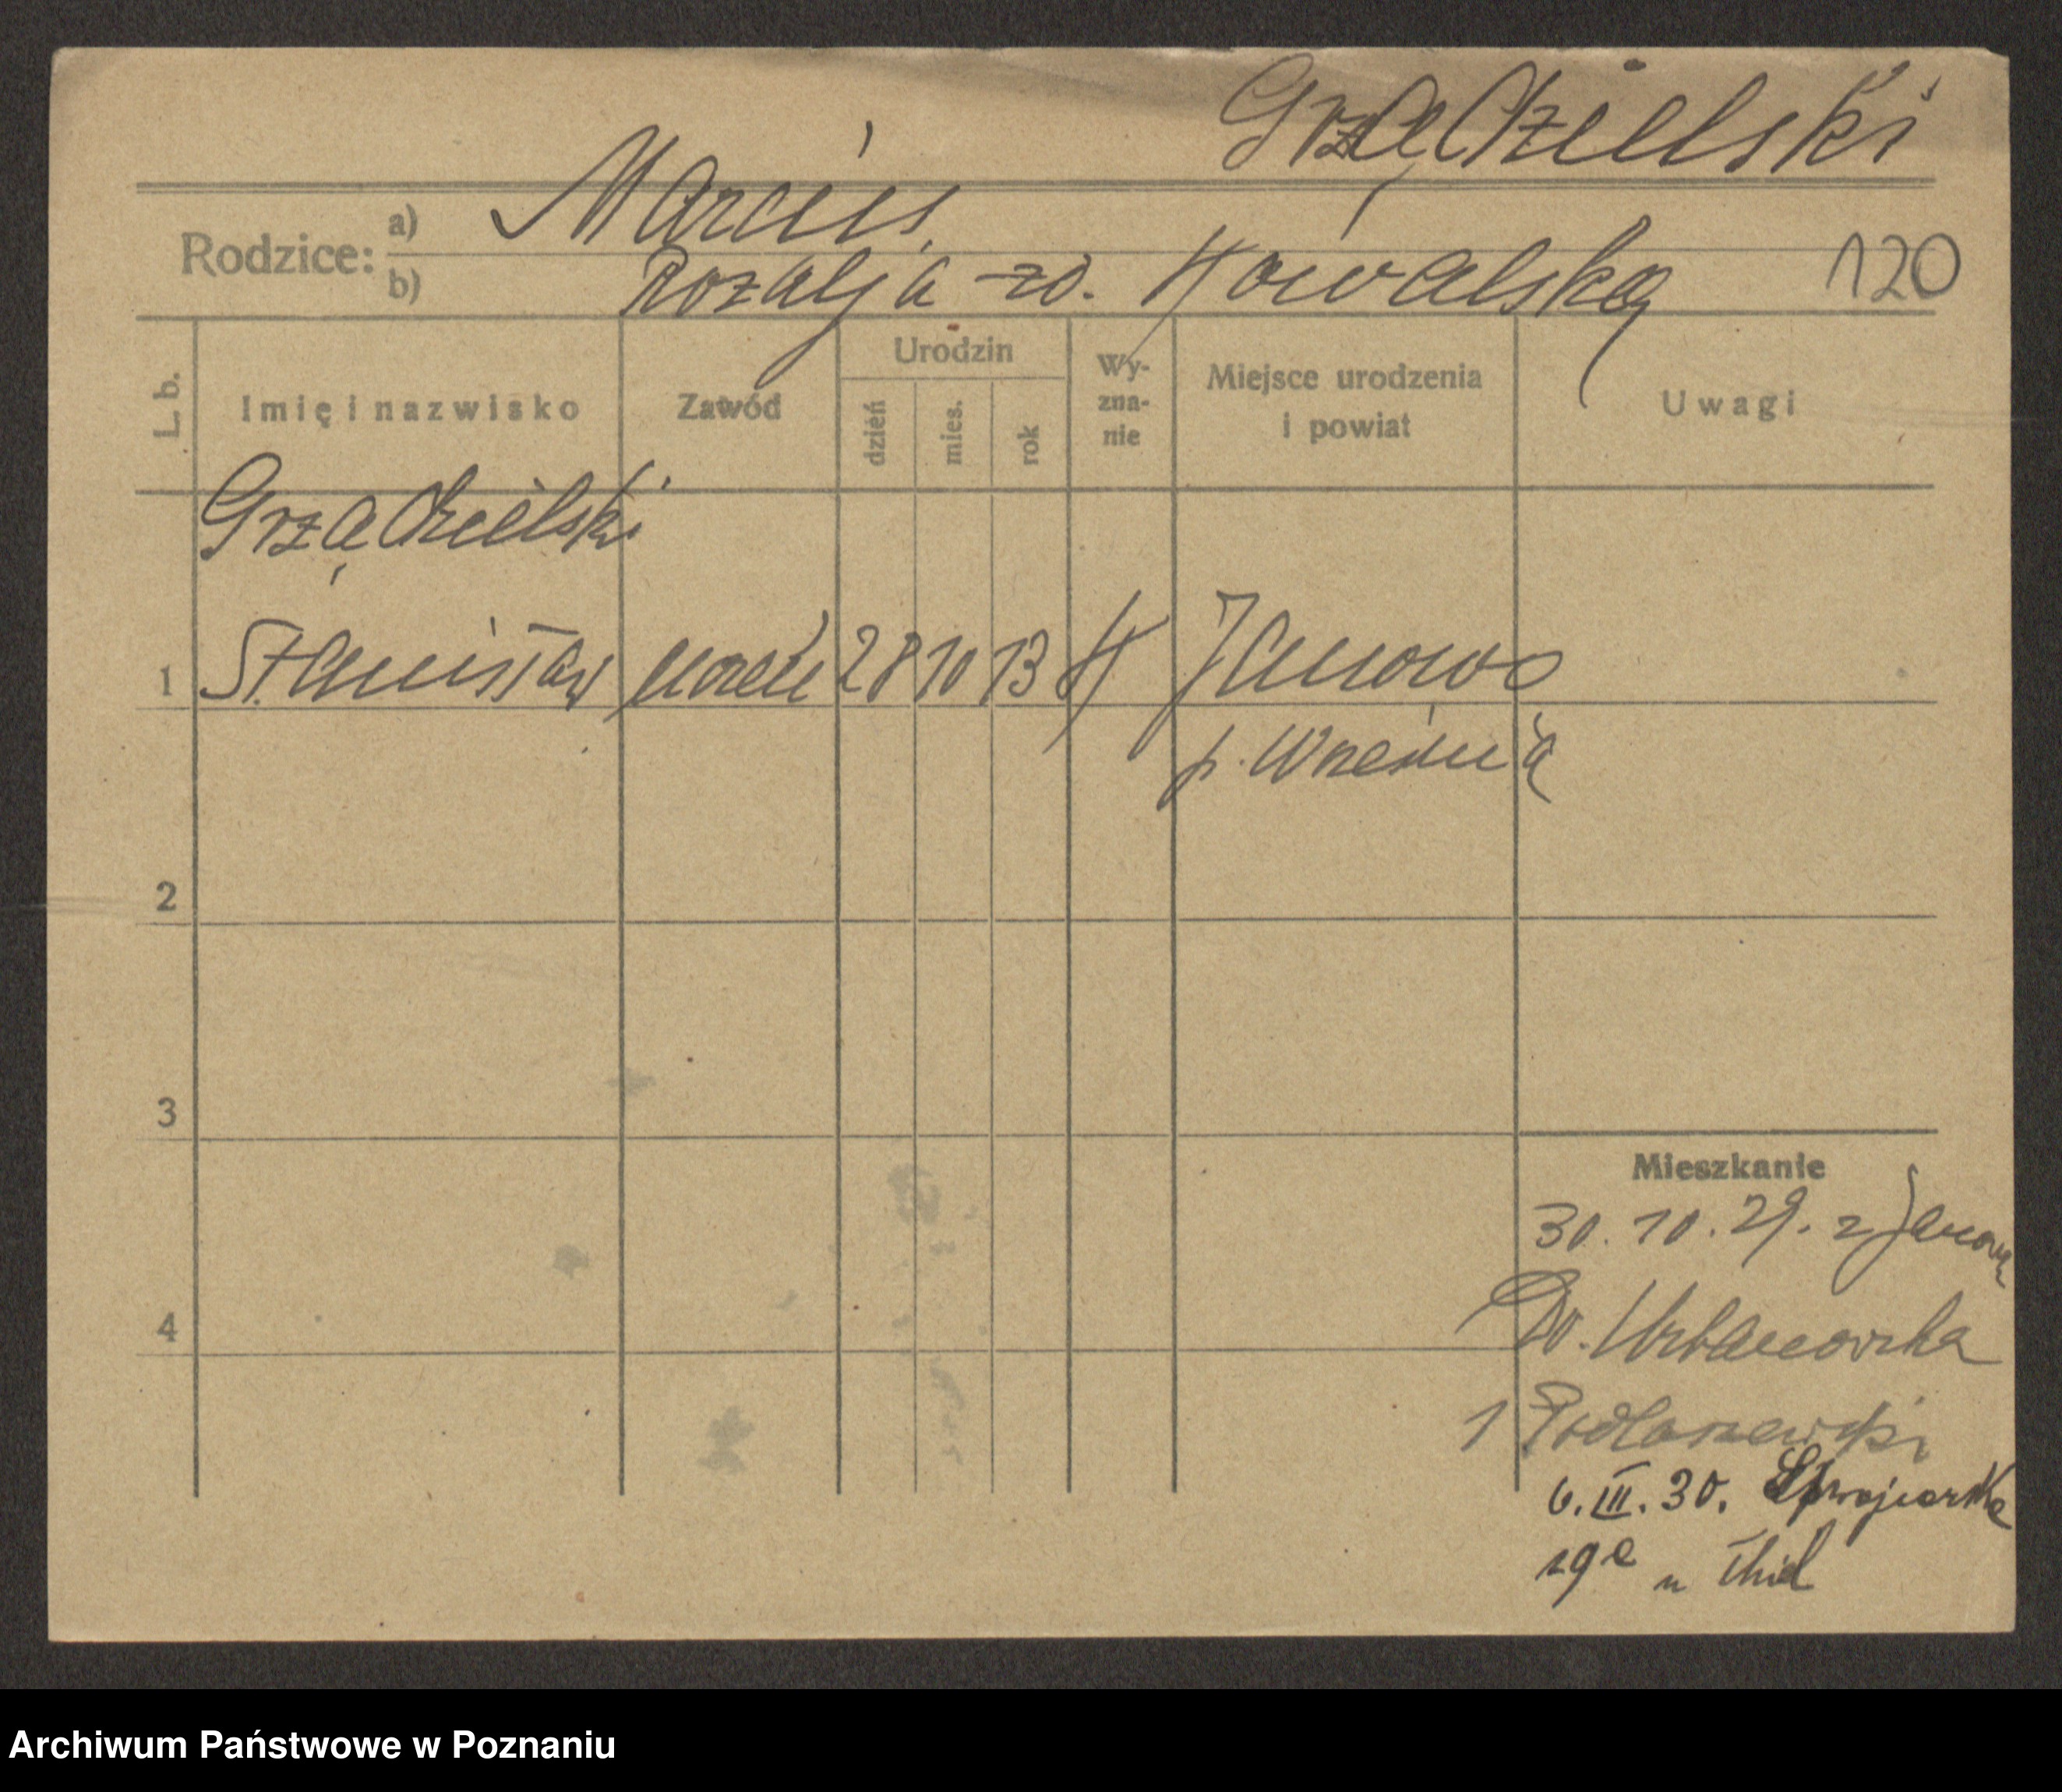 Grządzielski
Rodzice: a) Marcin
b) Rozalja zd. Kowalska
120
L. b. Imię i nazwisko Zawód Urodzin dzień mies. rok Wy-zna-nie Miejsce urodzenia i powiat Uwagi
Grządzielski
1 Stanisław uczeń 28 10 13 K Janowo
p. Września
2
3
Mieszkanie
30. 10. 29. z Janowa
4
Do. Urbanowska
1
6. III. 30.
19 e u Thiel
Archiwum Państwowe w Poznaniu